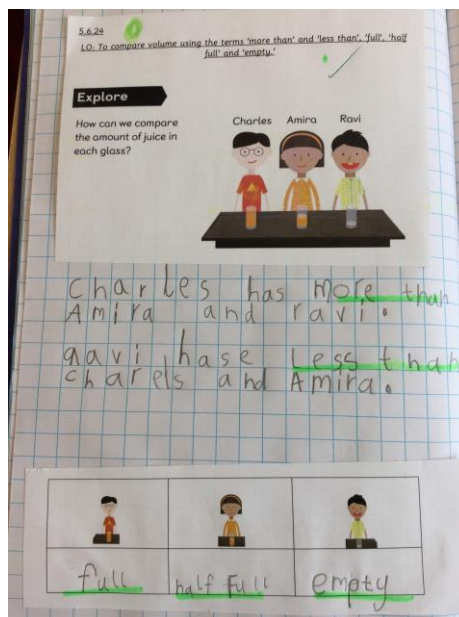 5.6.24
LO: To compare volume using the terms 'more than' and 'less than', 'full', 'half
full' and 'empty.'
Explore
How can we compare
the amount of juice in
each glass?
Charles Amira Ravi
Charles has more than
Amira and ravi.
Ravi hase less than
charels and Amira.
full half full empty